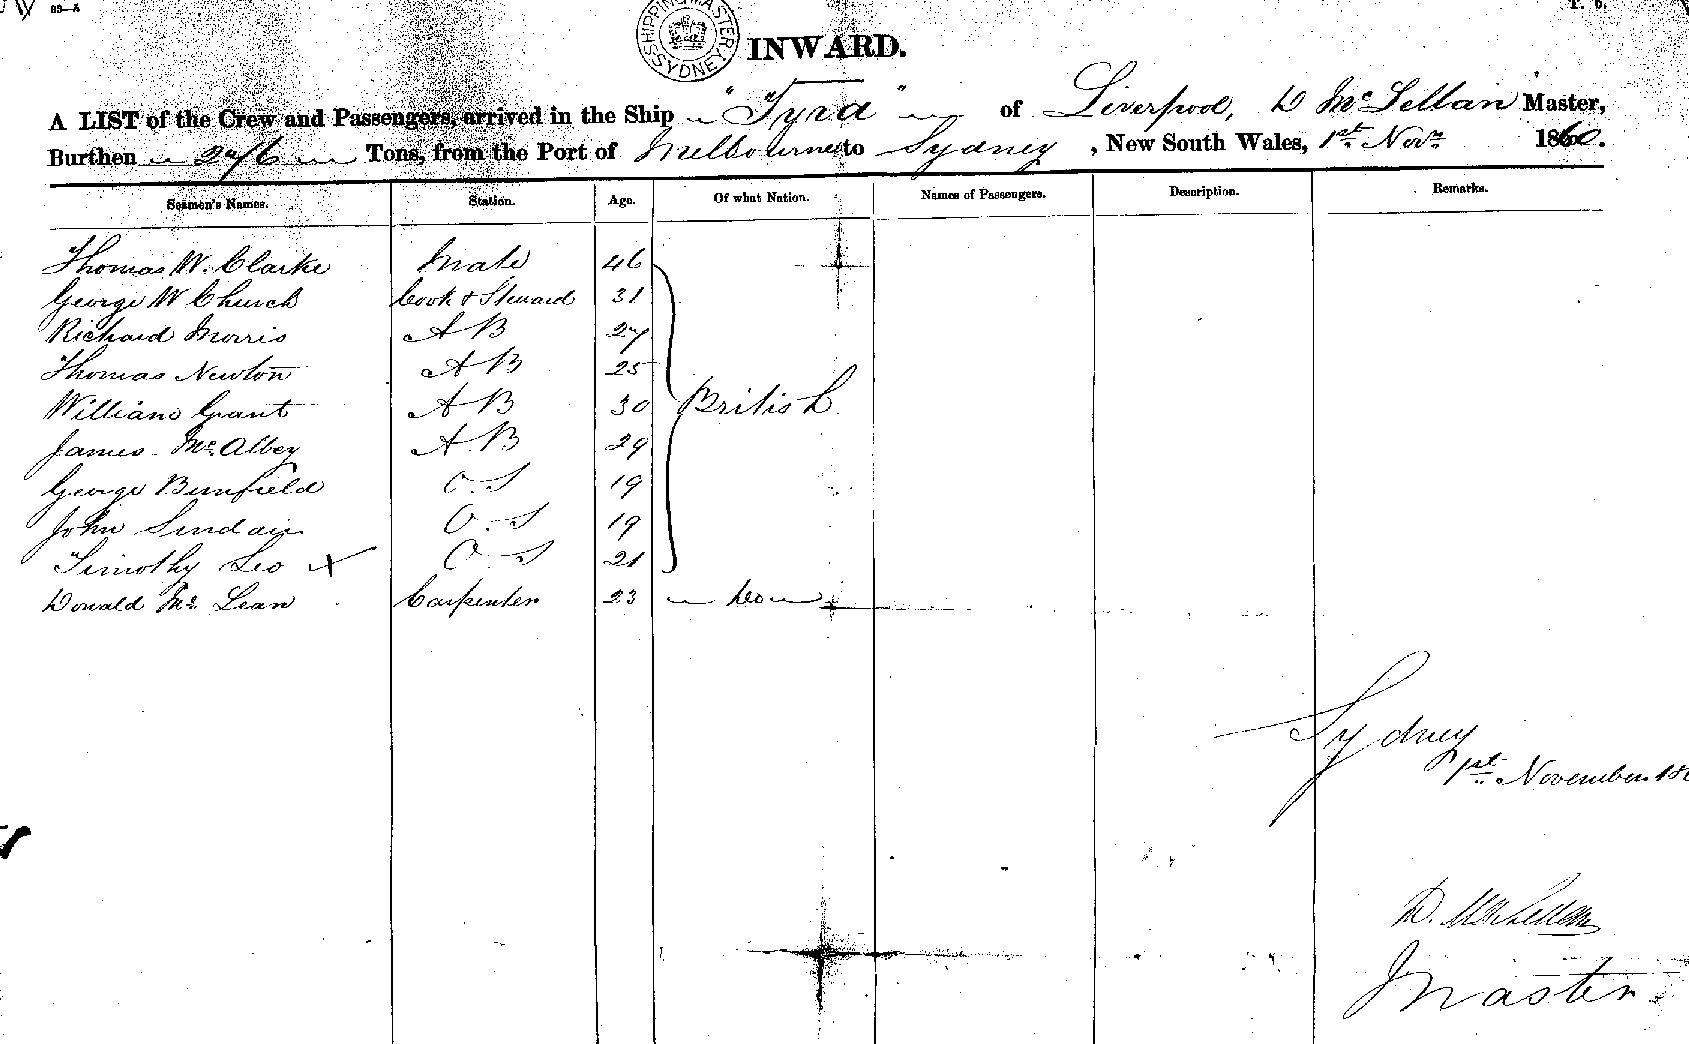 83—A
SHIPPING MASTER SYDNEY
INWARD.
A LIST of the Crew and Passengers, arrived in the Ship "Tyra" of Liverpool, D McLellan Master,
Burthen 276 Tons, from the Port of Melbourne to Sydney, New South Wales, 1st Novr 1860.
Seamen's Names. Station. Age. Of what Nation. Names of Passengers. Description. Remarks.
Thomas W. Clarke Mate 46
George W Church Cook & Steward 31
Richard Morris A B 27
Thomas Newton A B 25
William Grant A B 30 British
James Mc Albey A B 29
George Bunfield O.S 19
John Sinclair O.S 19
Timothy Leo X O S 21
Donald Mc Lean Carpenter 23 Do
Sydney
1st November 18
D. McLellan
Master